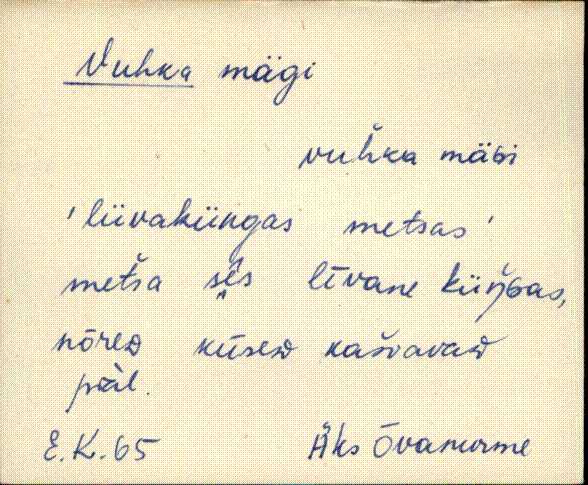 Vuhka mägi
vuh̆ka mäGi
'liivaküngas metsas'
metša sês līvane küŋ̆Gas,
nōreD kūseD kašvavaD
pääl.
E.K. 65 Äks Õvanurme